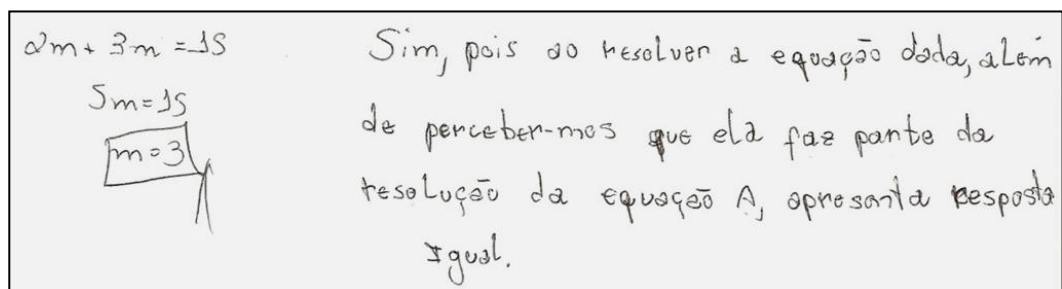 2m + 3m = 15
5m = 15
m = 3
Sim, pois ao resolver a equação dada, além
de perceber-mos que ela faz parte da
resolução da equação A, apresenta resposta
igual.